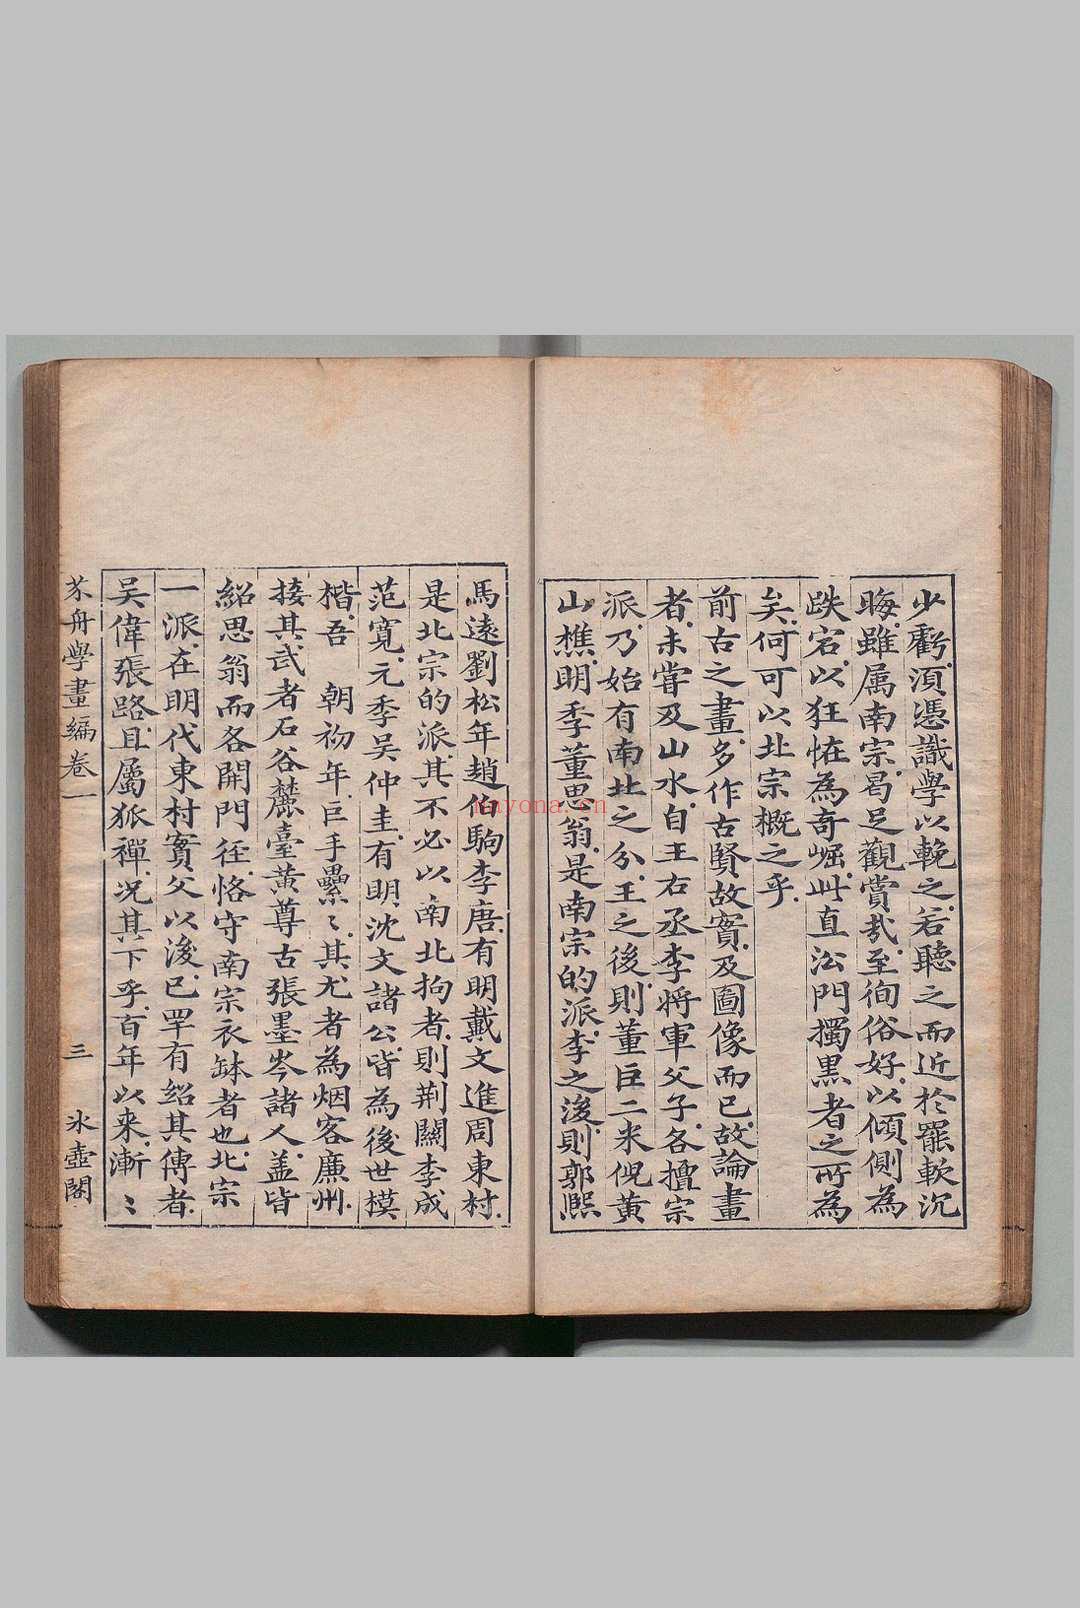 少虧湏憑識學以輓之若聽之而近於罷軟沉
晦雖属南宗曷足觀賞㢤至徇俗好以傾側為
跌宕以狂怪為奇崛此直沄門獨黒者之所為
矣何可以北宗概之乎
前古之畫多作古賢故實及圖像而已故論畫
者未嘗及山水自王右丞李将軍父子各擅宗
派乃始有南北之分王之後則董巨二米倪黃
山樵明季董思翁是南宗的派李之後則郭熙
馬遠劉松年趙伯駒李唐有明戴文進周東村
是北宗的派其不必以南北拘者則荆關李成
范寬元季吳仲圭有明沈文諸公皆為後世模
楷吾 朝初年巨手纍〻其尤者為烟客廉州
接其武者石谷麓臺黃尊古張墨岑諸人盖皆
紹思翁而各開門徑恪守南宗衣缽者也北宗
一派在明代東村實父以後已罕有紹其傳者
吴偉張路且屬狐禪况其下乎百年以来漸〻
芥舟學畫編卷一 三 氷壺閣
nayona.cn